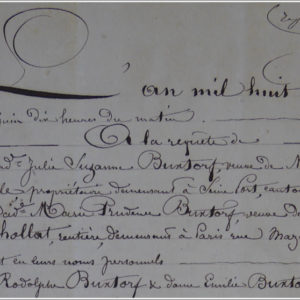 L'an mil huit
juin dix heures du matin
A la requête de
ad.e Julie Suzanne Buxtorf veuve de M
le propriétaire demeurant à Seine Port, canton
ad.e Marie Prudence Buxtorf, veuve de
hollat, rentière, demeurant à Paris rue Maz
et en leurs noms personnels
Rodolphe Buxtorf & dame Emilie Buxto